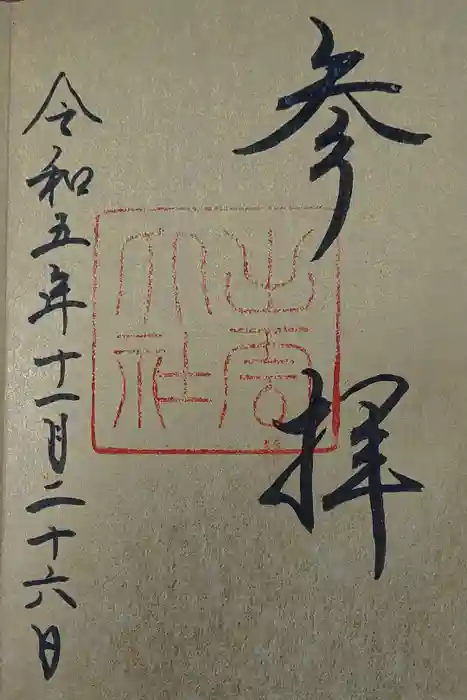 参拝
出雲大社
令和五年十一月二十六日